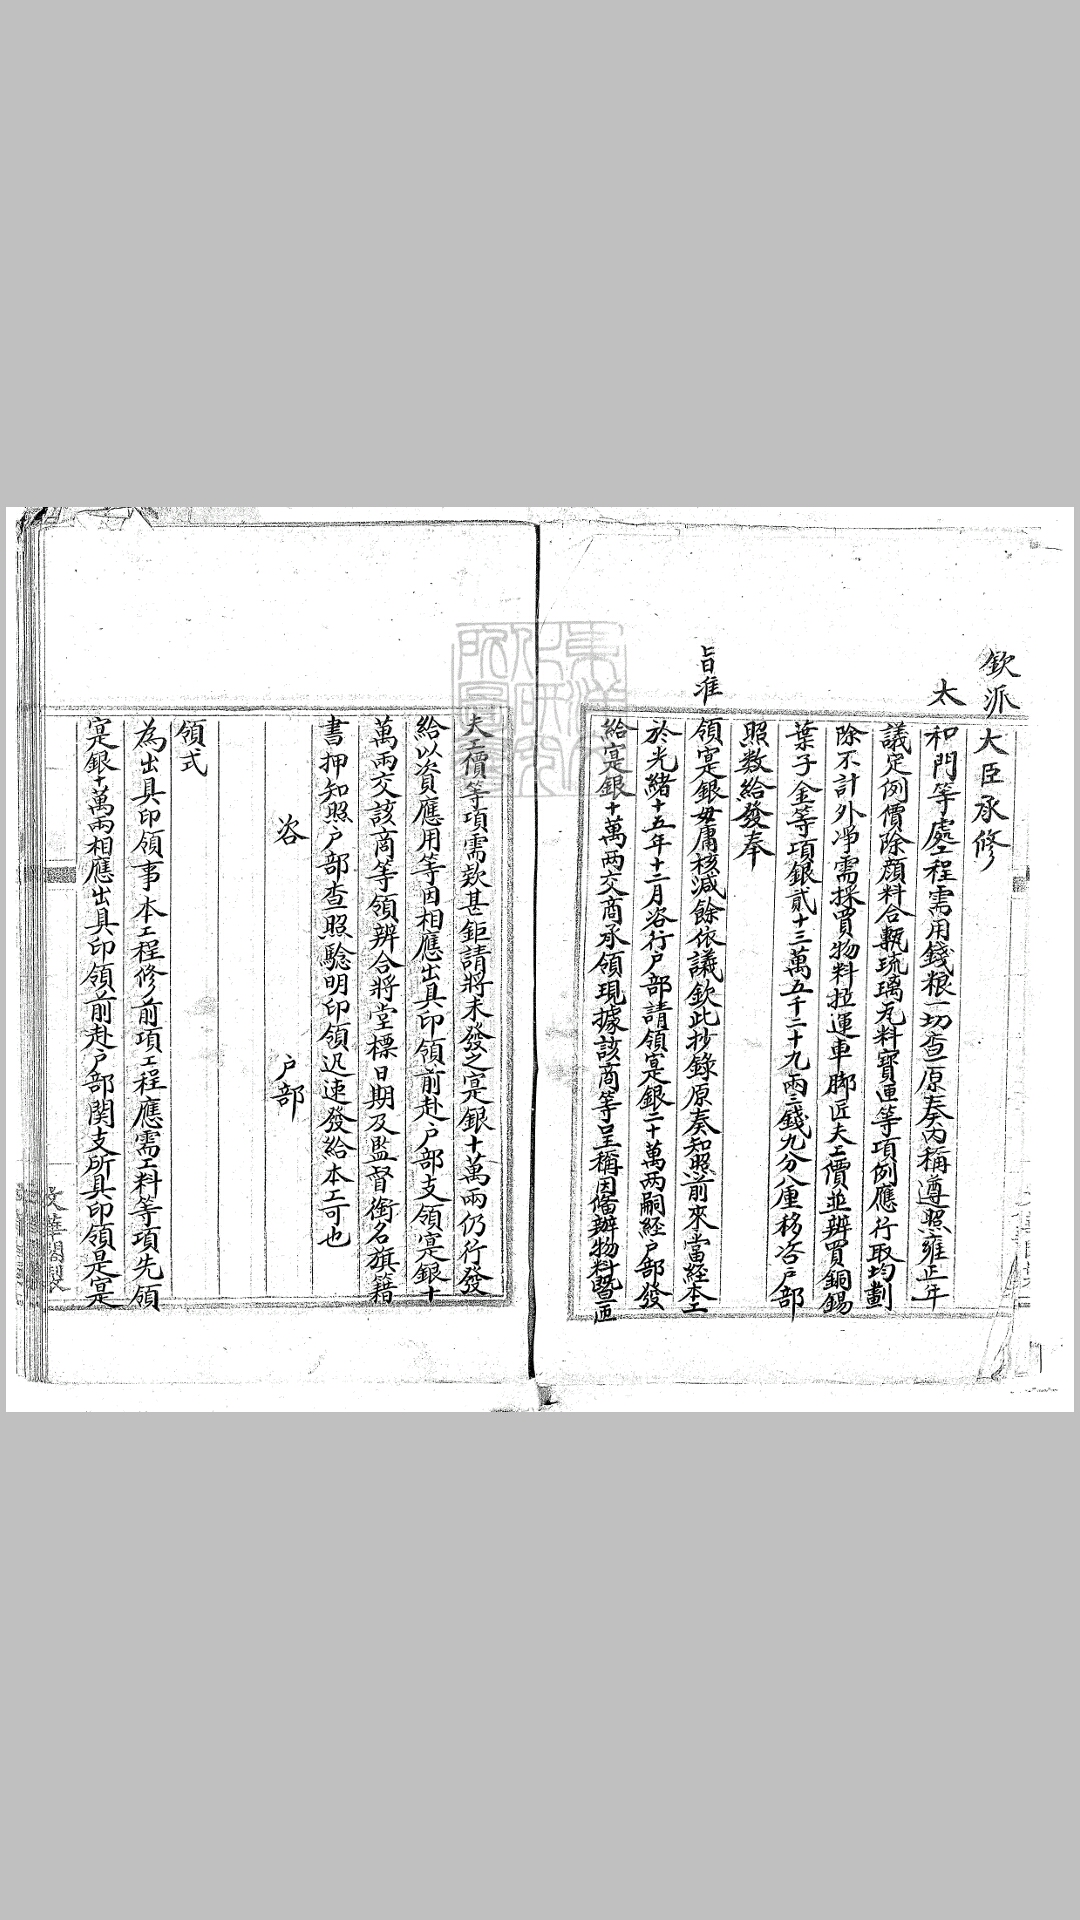 欽派大臣承修
太
和門等處工程需用錢粮一切查原奏内稱遵照雍正年
議定例價除顏料合甎琉璃瓦料寶匣等項例應行取均劃
除不計外淨需採買物料拉運車脚匠夫工價並辨買銅錫
葉子金等項銀貳十三萬五千二十九兩三錢九分八厘移咨户部
照数給發奉
旨准
領寔銀毋庸核減餘依議欽此抄錄原奏知照前來當經本工
於光緒十五年十二月咨行户部請領寔銀二十萬两嗣經户部發
給寔銀十萬两交商承領現據該商等呈稱因備辦物料暨匠
夫工價等項需款甚鉅請將未發之寔銀十萬兩仍行發
給以資應用等因相應出具印領前赴户部支領寔銀十
萬兩交該商等領辨合將堂標日期及監督銜名旗籍
書押知照户部查照驗明印領迅速發給本工可也
咨　户部
領式
為出具印領事本工程修前項工程應需工料等項先領
寔銀十萬兩相應出具印領前赴户部関支所具印領是寔
華閣製